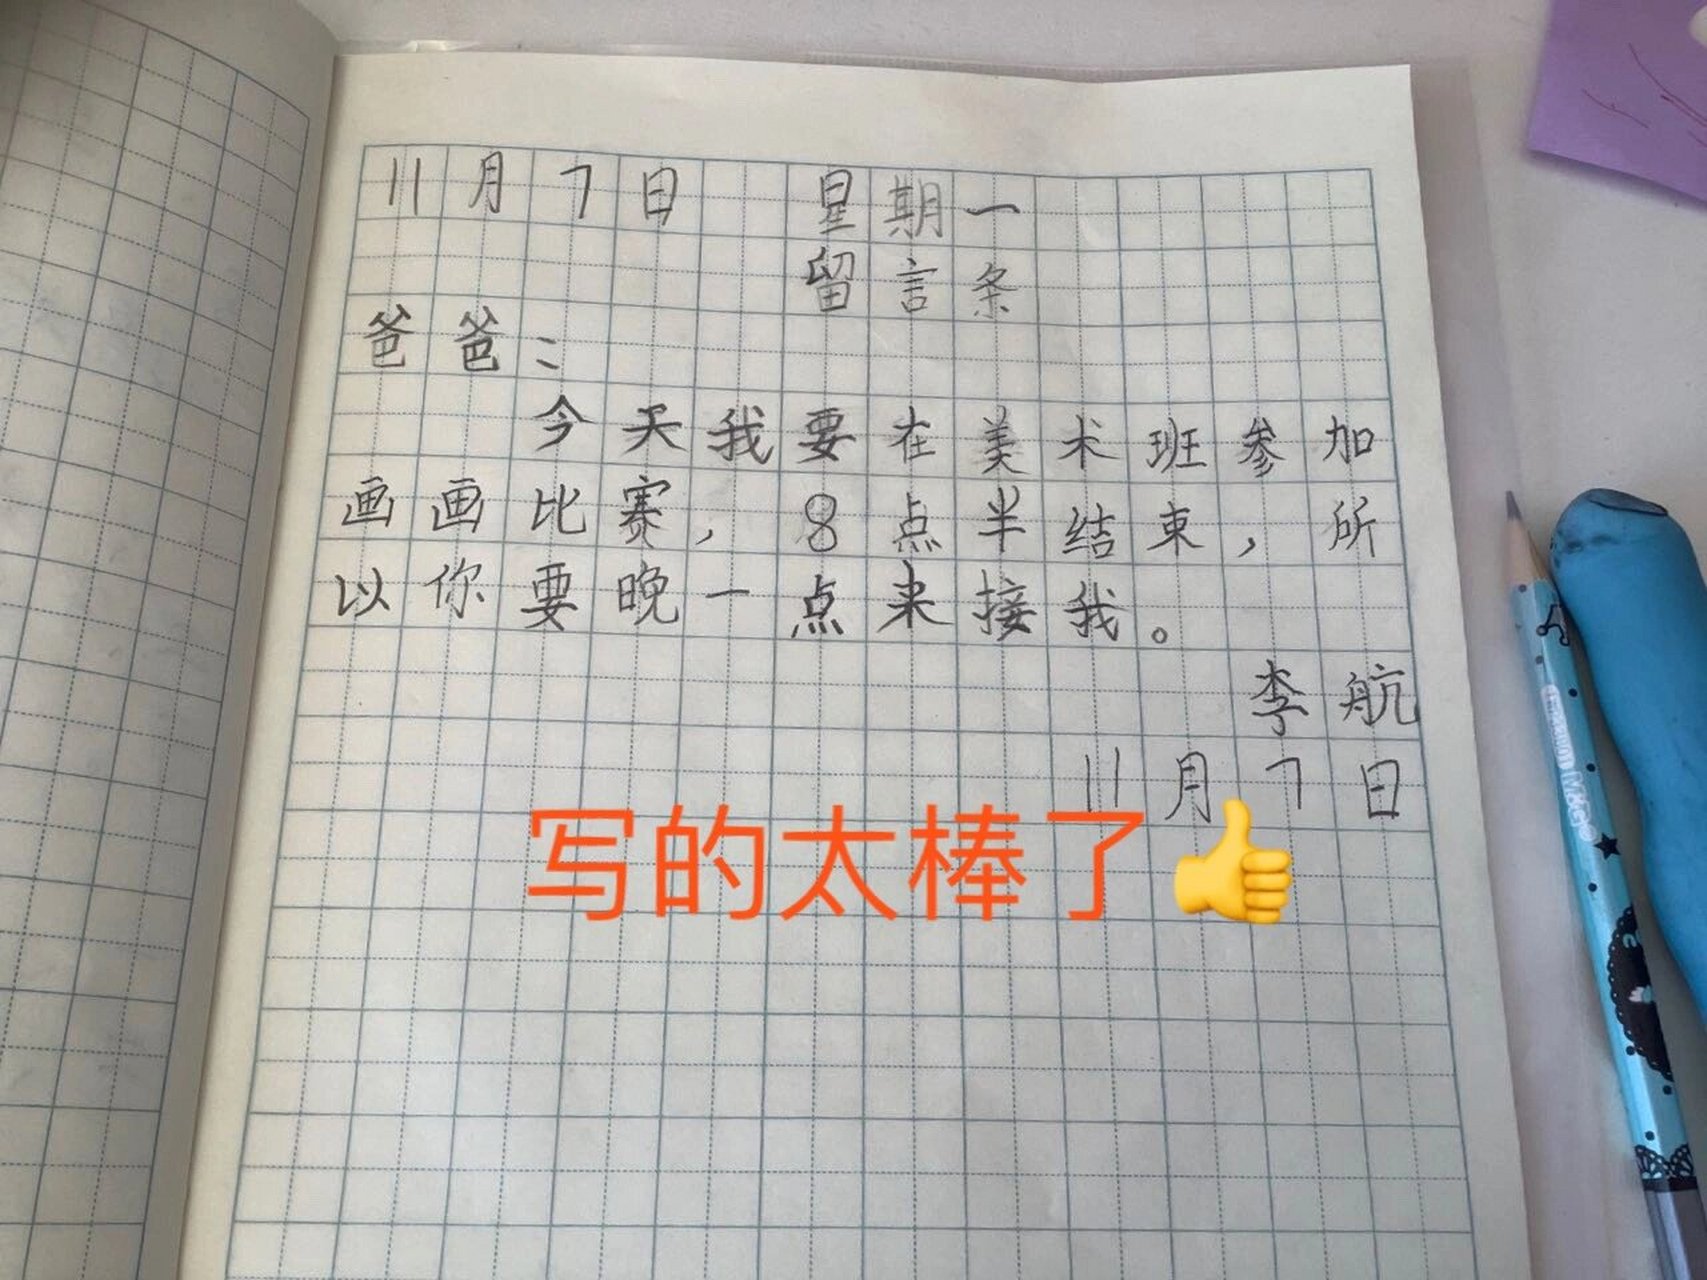 11月7日 星期一
留言条
爸爸：
今天我要在美术班参加
画画比赛，8点半结束，所
以你要晚一点来接我。
李航
11月7日
写的太棒了👍